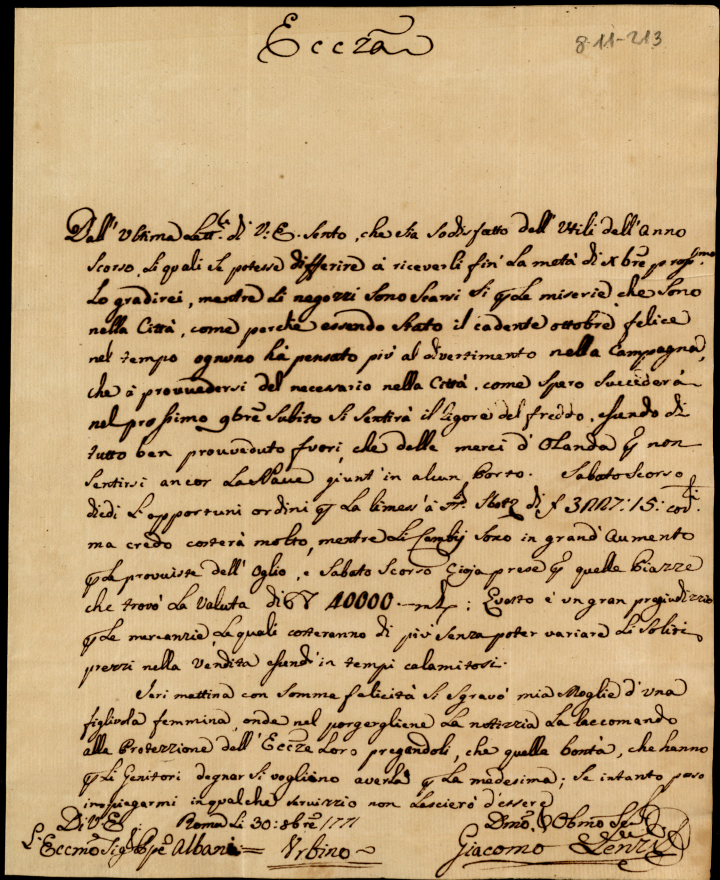 Eccza
8-11-213
Dall' Ultima Lett.ª di V: E. Sento, che sia sodisfatto dell' Utili dell' Anno
scorso, li quali se potesse differire à riceverli fin' La metà di Xbrè pross.imo
Lo gradirei, mentre li negozzi sono scarsi sì p Le miserie che sono
nella Città, come perchè essendo stato il cadente ottobre felice
nel tempo ognuno hà pensato più al divertimento nella Campagna,
che à provvedersi del necessario nella Città, come spero succederà
nel prossimo 9brè subito si sentirà il rigore del freddo, essendo di
tutto ben provveduto fuori, che delle merci d' Olanda p non
sentirsi ancor La Nave giunt' in alcun Porto. Sabato Scorso
diedi li opportuni ordini p La rimess' à di f 3227: 15: cor.ti
ma credo costerà molto, mentre Li Cambij sono in grand' Aumento
p Le provviste dell' Oglio, e Sabato Scorso Gioja prese p quelle Piazze
che trovò La Valuta di 40000 ; Questo è un gran pregiudizzio
p Le mercanzie La quali costeranno di più senza poter variare Li soliti
prezzi nella Vendita essend' in tempi calamitosi.
Ieri mattina con somma felicità si sgravò mia Moglie d' una
figliuola femmina, onde nel porgergliene La notizzia La raccomando
alla Protezzione dell' Eccze Loro pregandoli, che quella bontà, che hanno
p Li Genitori degnar si vogliano averla p La medesima; Se intanto posso
impiegarmi in qualche servizzio non Lascierò d' essere
Di V: E: Roma Li 30: 8brè 1771 Dmo, ed Obmo Ser
L' Eccmo Sig.r Ppè Albani = Urbino Giacomo Lenzi